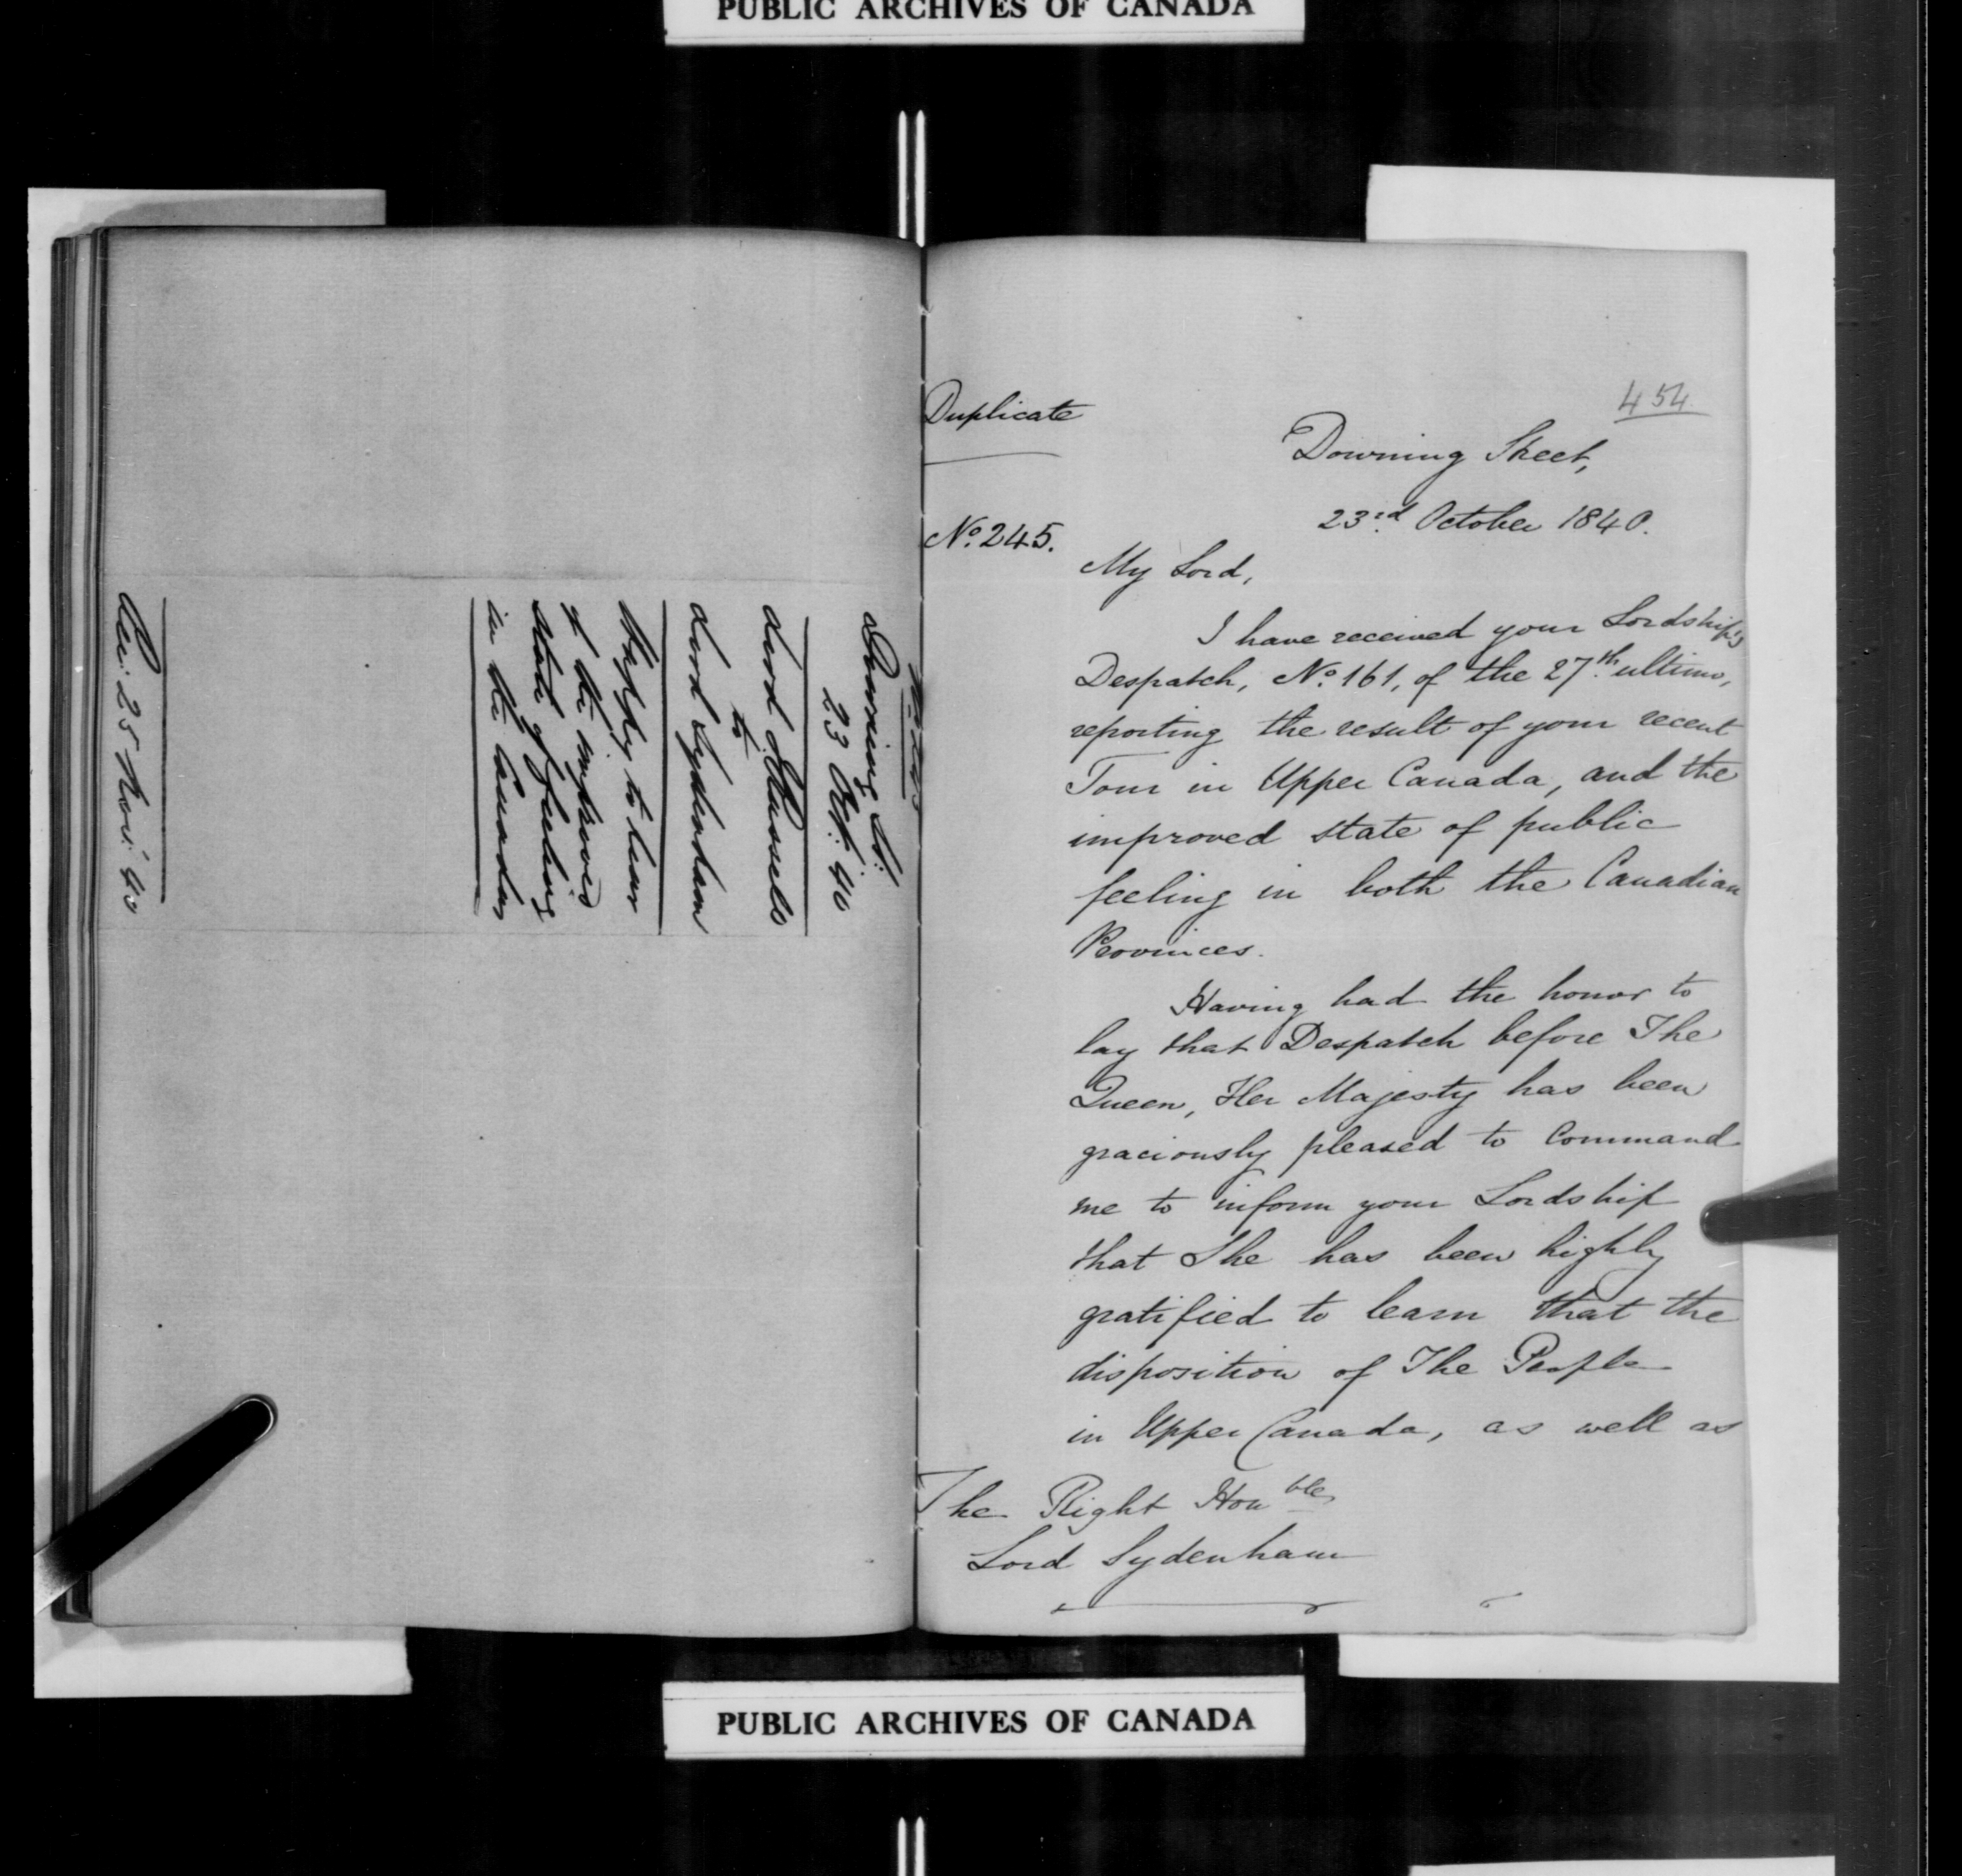 PUBLIC ARCHIVES OF CANADA
Downing St.
23 Oct. 40
Lord J Russell
to
Lord Sydenham
Happy to hear
of the improved
state of feeling
in the Canadas
Rec. 25 Nov. 40
454
Duplicate
Downing Street,
23rd October 1840.
No. 245.
My Lord,
I have received your Lordship's
Despatch, No. 161, of the 27th ultimo,
reporting the result of your recent
Tour in Upper Canada, and the
improved state of public
feeling in both the Canadian
Provinces.
Having had the honor to
lay that Despatch before The
Queen, Her Majesty has been
graciously pleased to Command
me to inform your Lordship
that She has been highly
gratified to learn that the
disposition of The People
in Upper Canada, as well as
The Right Honble
Lord Sydenham
PUBLIC ARCHIVES OF CANADA